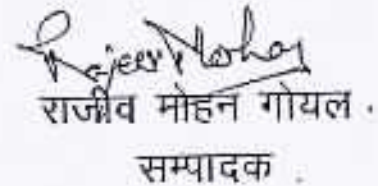 Rajeev Mohan
राजीव मोहन गोयल .
सम्पादक .